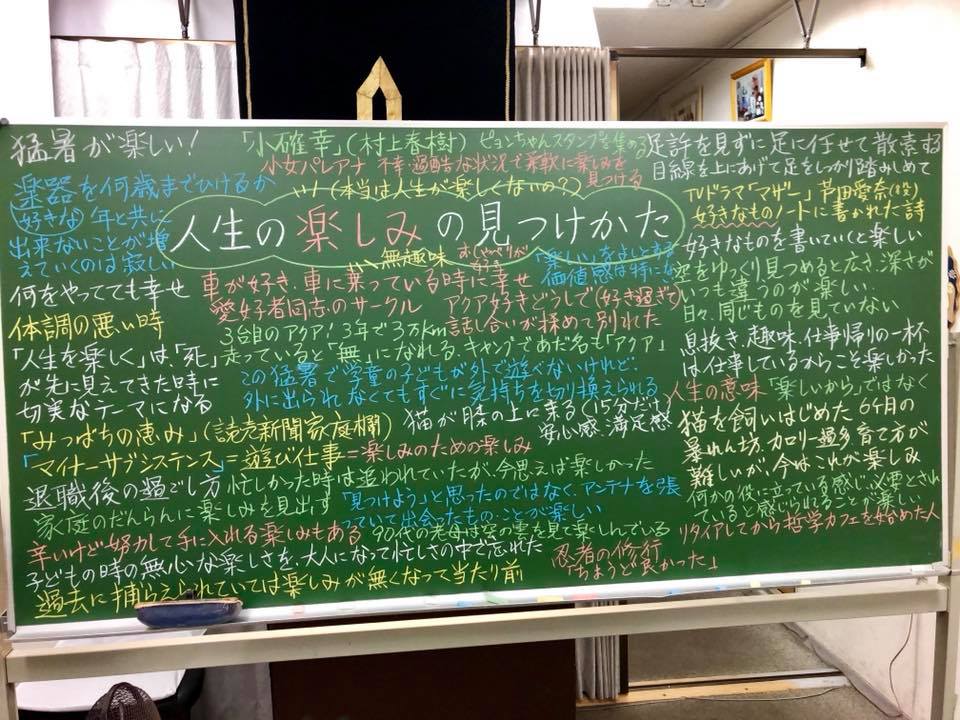 猛暑が楽しい!
「小確幸」(村上春樹)
ピョンちゃんスタンプを集める
足許を見ずに足に任せて散索する
目線を上にあげて足をしっかり踏みしめて
少女パレアナ 不幸・過酷な状況で果敢に楽しみを
見つける
(本当は人生が楽しくないの?)
人生の楽しみの見つけかた
楽器を何歳までひけるか
(好きな)年と共に
出来ないことが増
えていくのは寂しい
何をやってても幸せ
体調の悪い時
「人生を楽しく」は、「死」
が先に見えてきた時に
切実なテーマになる
無趣味
おしゃべりが
好き
車が好き、車に乗っている時に幸せ
愛好者同志のサークル
3台目のアクア!3年で3万km
走っていると「無」になれる、キャンプであだ名も「アクア」
価値感は特にな
アクア好きどうしで(好き過ぎて)
話し合いが揉めて別れた
この猛暑で学童の子どもが外で遊べないけれど、
外に出られなくてもすぐに気持ちを切り換えられる
猫が膝の上に来る(15分だけ)
安心感、満足感
TVドラマ「マザー」芦田愛奈(役)
好きなものノートに書かれた詩
好きなものを書いていくと楽しい
空をゆっくり見つめると広さ、深さが
いつも違うのが楽しい、
日々、同じものを見ていない
息抜き、趣味、仕事帰りの一杯
は仕事しているからこそ楽しかった
人生の意味 「楽しいから」ではなく
猫を飼いはじめた 6ヶ月の
暴れん坊、カロリー過多 育て方が
難しいが、今はこれが楽しみ
何かの役に立っている感じ、必要とされ
ていると感じられることが楽しい
リタイアしてから哲学カフェを始めた人
「みつばちの恵み」(読売新聞家庭欄)
「マイナーサブシステンス」=遊び仕事=楽しみのための楽しみ
退職後の過ごし方 忙しかった時は追われていたが、今思えば楽しかった
家庭のだんらんに楽しみを見出す
「見つけよう」と思ったのではなく、アンテナを張
っていて出会ったもの、ことが楽しい
辛いけど努力して手に入れる楽しみもある
90代の老母は空の雲を見て楽しんでいる
子どもの時の無心な楽しさを、大人になって忙しさの中で忘れた
忍者の修行
「ちょうど良かった」
過去に捕らえられていては楽しみが無くなって当たり前